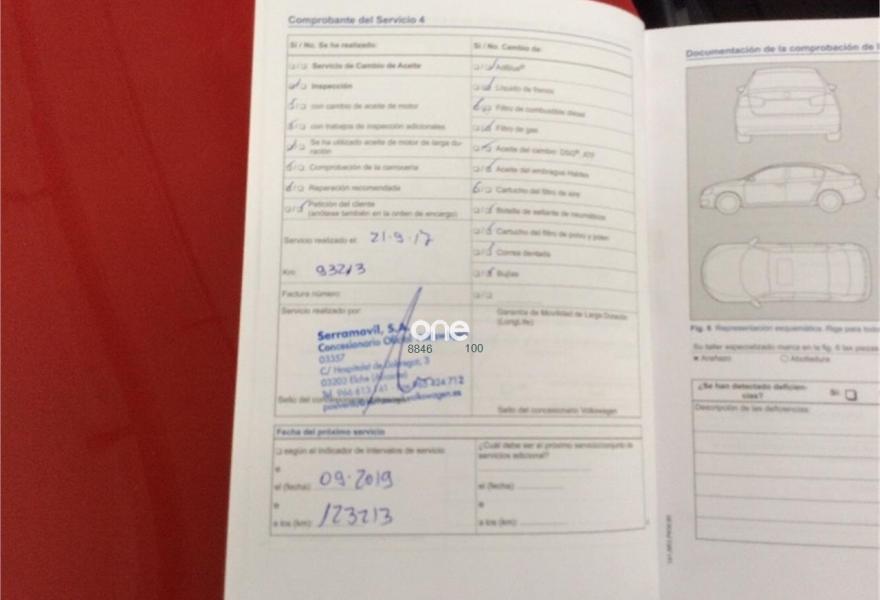 Comprobante del Servicio 4
Sí / No. Se ha realizado:
Servicio de Cambio de Aceite
Inspección
con cambio de aceite de motor
con trabajos de inspección adicionales
Se ha utilizado aceite de motor de larga du-
ración
Comprobación de la carrocería
Reparación recomendada
Petición del cliente
(anótese también en la orden de encargo)
Servicio realizado el: 21-9-17
Km: 93213
Factura número:
Servicio realizado por:
Serramavil, S.A.
Concesionario
03337
C/ Hospitalet de 3
03203 Elche
Tel.
Sello del
Sí / No. Cambio de:
AdBlue®
Líquido de frenos
Filtro de combustible diésel
Filtro de gas
Aceite del cambio DSG®, ATF
Aceite del embrague Haldex
Cartucho del filtro de aire
Botella de sellante de neumáticos
Cartucho del filtro de polvo y polen
Correa dentada
Bujías
Garantía de Movilidad de Larga Duración
(LongLife)
Sello del concesionario Volkswagen
one
8846 100
Fecha del próximo servicio
según el indicador de intervalos de servicio
o
el (fecha): 09-2019
o
a los (km): 123213
¿Cuál debe ser el próximo
servicios adicional?
el (fecha):
o
a los (km):
Documentación de la comprobación de
Fig. 6 Representación esquemática. Rige para
Su taller especializado marca en la fig. 6 las piezas
Arañazo Abolladura
¿Se han detectado deficien-
cias? Sí:
Descripción de las deficiencias: